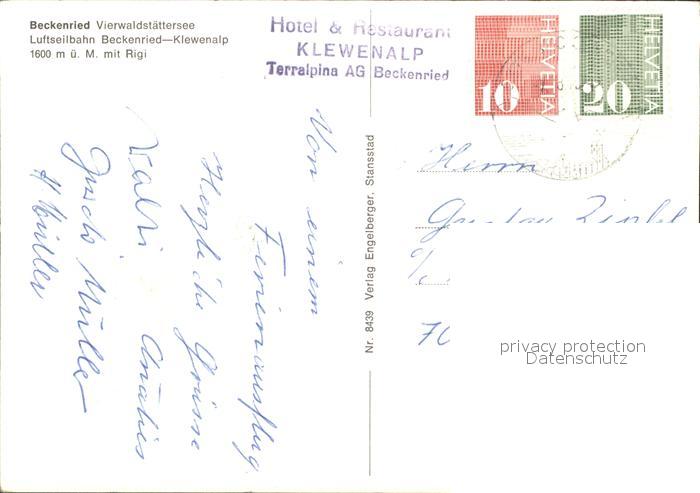 Beckenried Vierwaldstättersee
Luftseilbahn Beckenried—Klewenalp
1600 m ü. M. mit Rigi
Hotel & Restaurant
KLEWENALP
Terralpina AG Beckenried
HELVETIA
10
HELVETIA
20
Von einem
Ferienausflug
Herzliche Grüsse
Guido Müller
H Müller
Nr. 8439 Verlag Engelberger, Stansstad
Herrn
privacy protection
Datenschutz